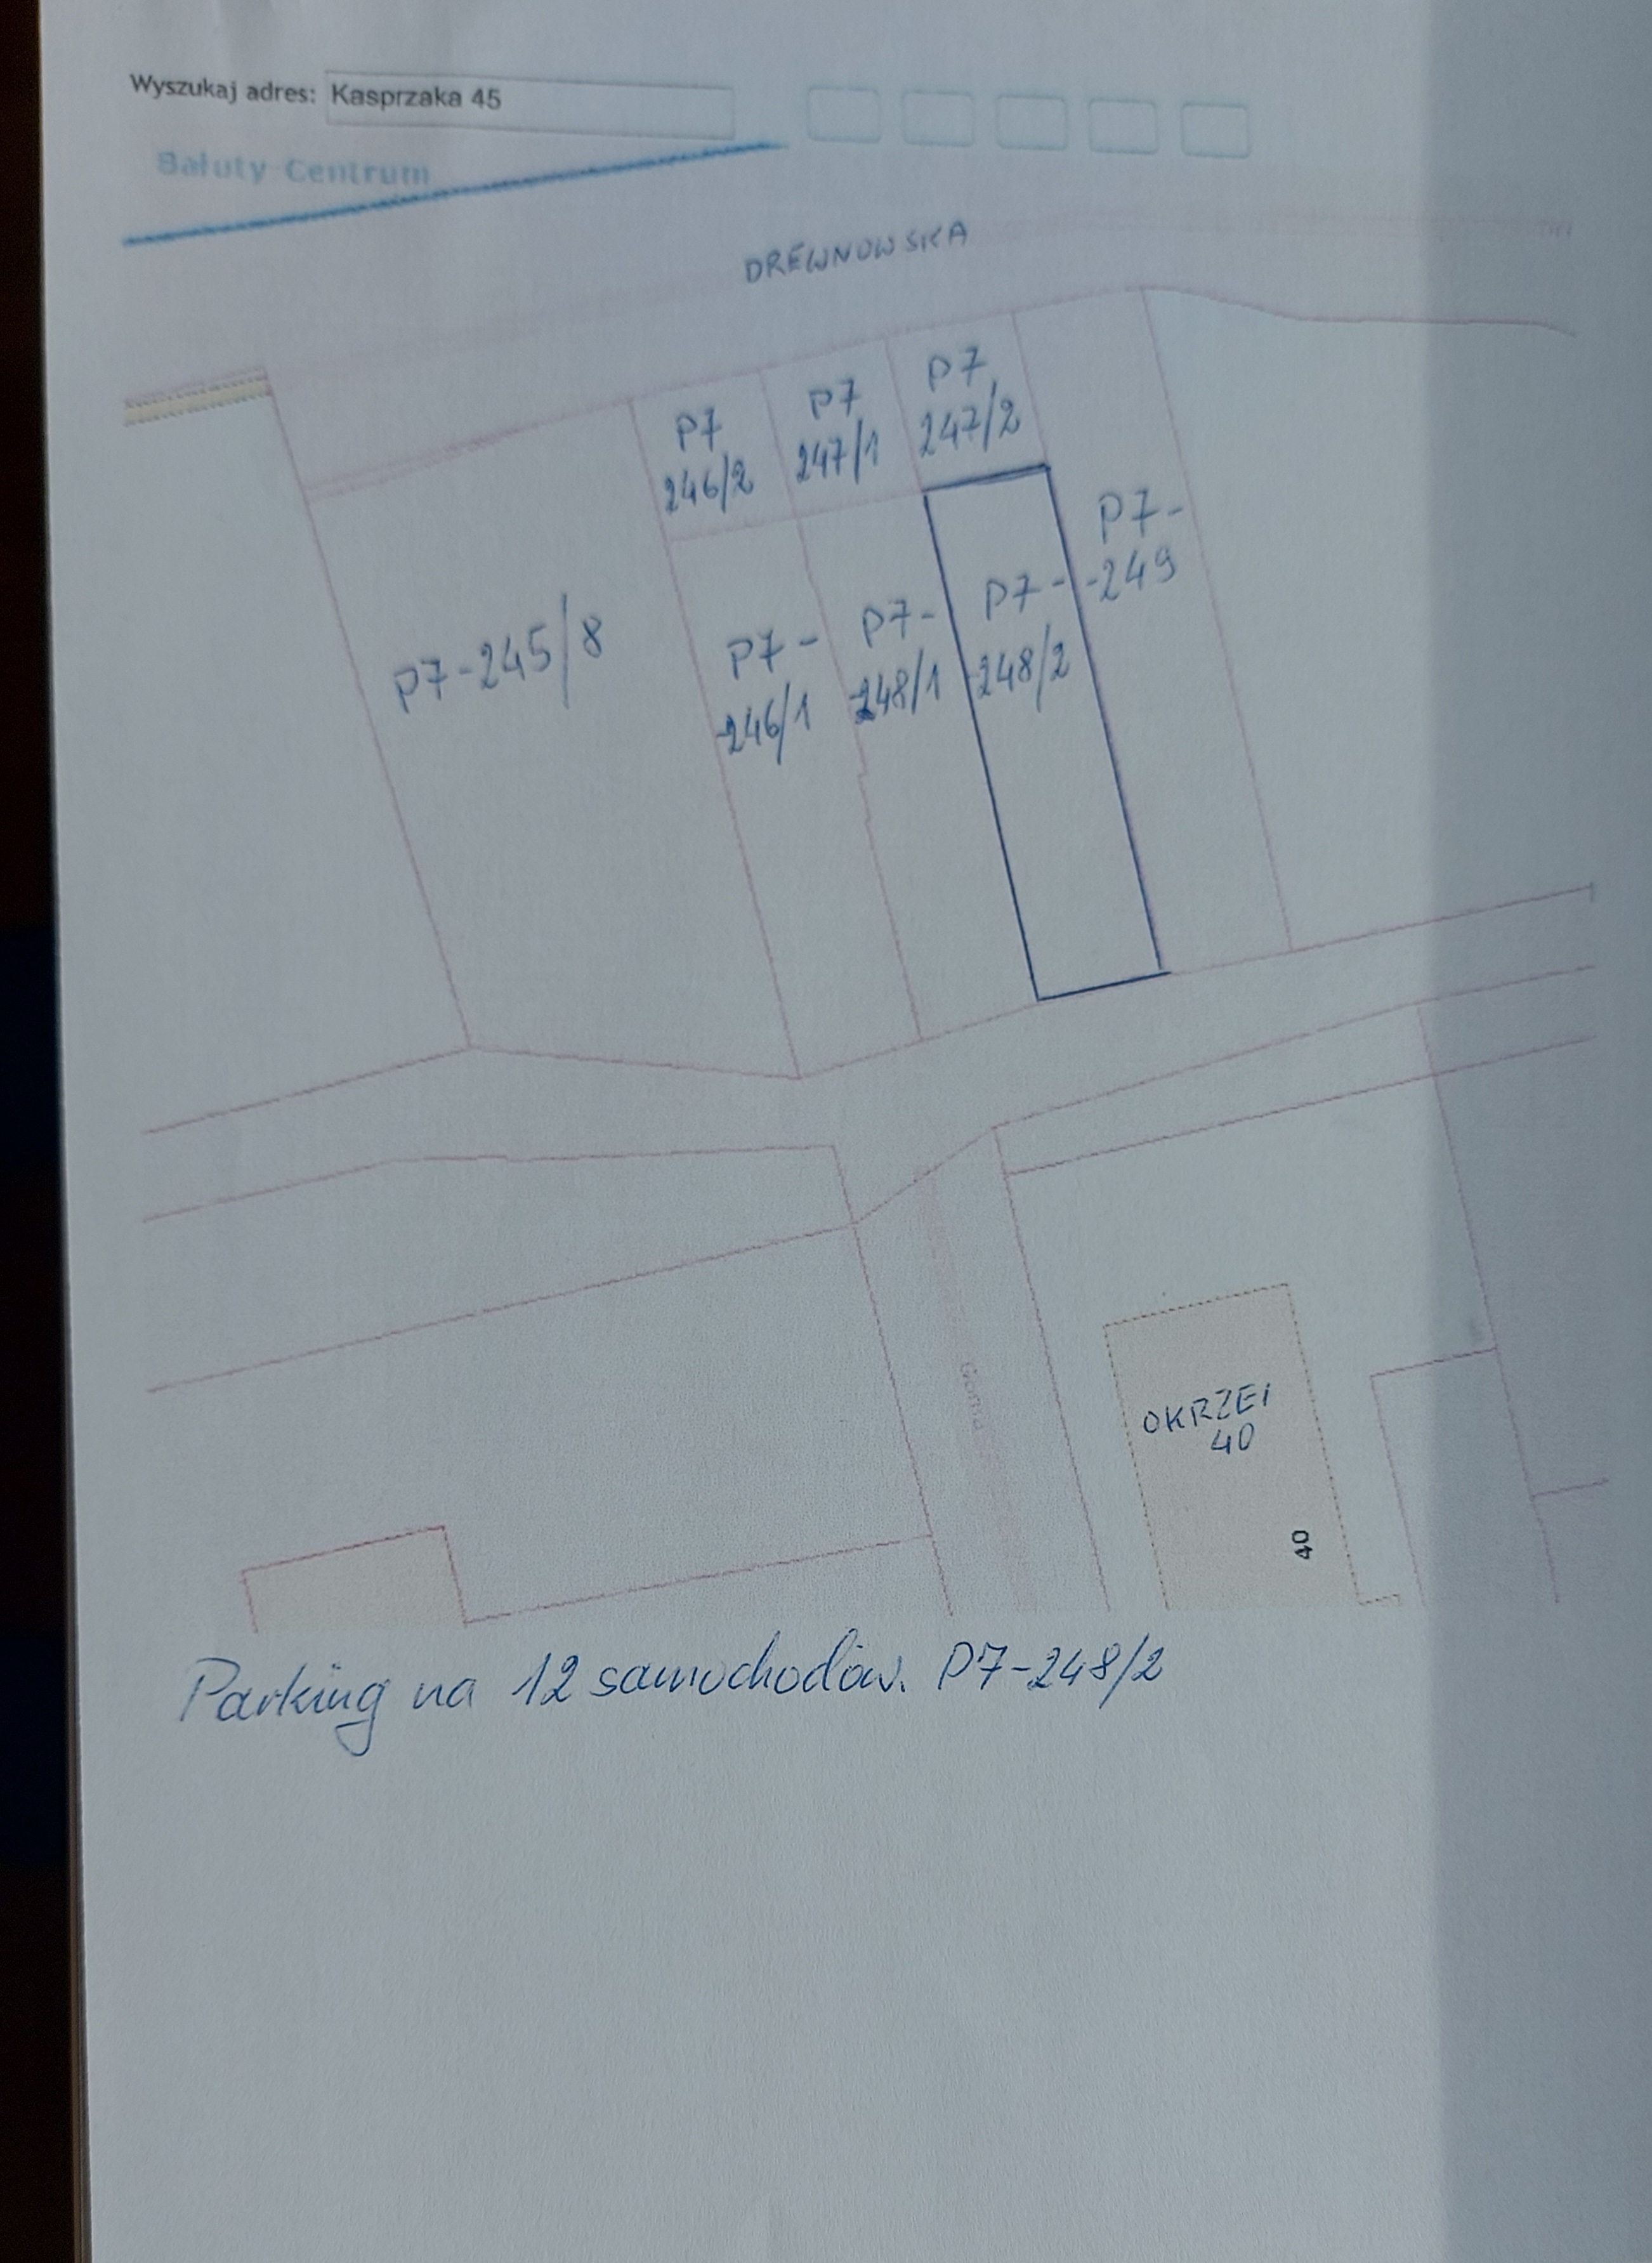 Wyszukaj adres: Kasprzaka 45
Bałuty Centrum
DREWNOWSKA
P7
246/2
P7
247/1
P7
247/2
P7-245/8
P7-
-246/1
P7-
-248/1
P7-
-248/2
P7-
-249
OKRZEI
40
40
Parking na 12 samochodów. P7-248/2